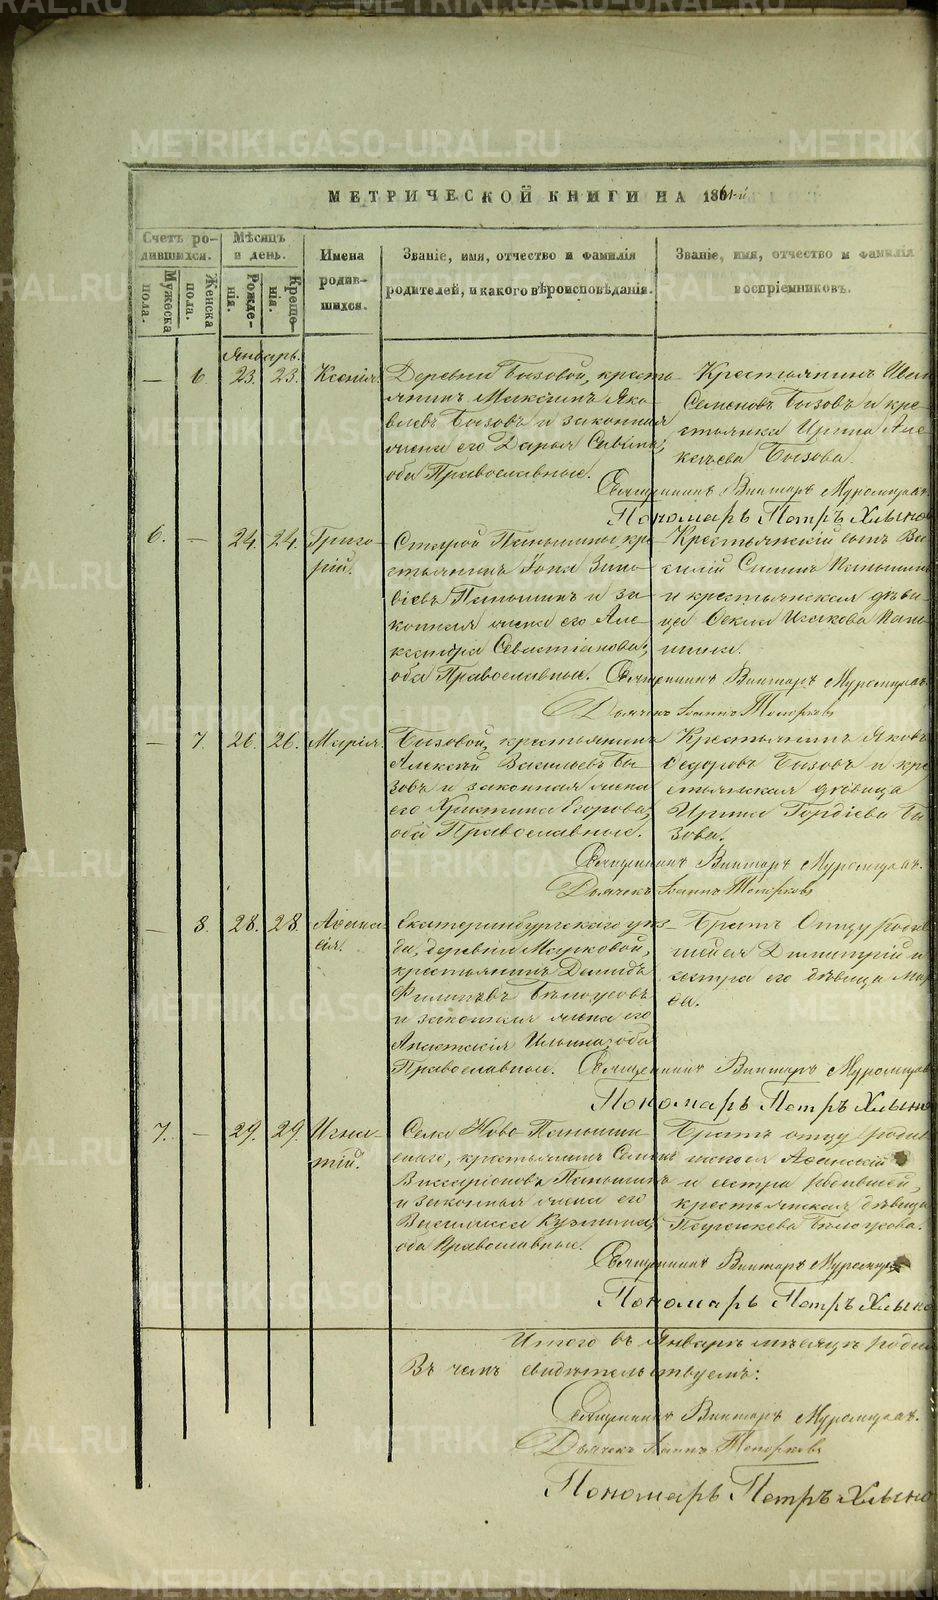 МЕТРИЧЕСКОЙ КНИГИ НА 1861-й
Счетъ ро-
дившихся.
Мужеска
пола.
Женска
пола.
Мѣсяцъ
и день.
Рожде-
нія.
Креще-
нія.
Имена
родив-
шихся.
Званіе, имя, отчество и фамилія
родителей, и какого вѣроисповѣданія.
Званіе, имя, отчество и фамилія
воспріемниковъ.
Январь.
— 6 23. 23. Ксенія.
Деревни Бызовой, кресть-
янинъ Максимъ Яко-
влевъ Бызовъ и законная
жена его Дарья Савина;
оба Православные.
Крестьянинъ
Семеновъ Бызовъ и кре-
стьянка Ирина Але-
ксѣева Бызова.
Священникъ Викторъ Муромцевъ.
Пономарь Петръ Хлыно
6. — 24. 24. Григо-
рій.
Старой Паньшиной кре-
стьянинъ Іона Зино-
віевъ Паньшинъ и за-
конная жена его Але-
ксандра Севастіанова;
оба Православные.
Крестьянскій сынъ Ва-
силій Паньшинъ
и крестьянская дѣви-
ца Ѳекла Исакова Пань-
шина.
Священникъ Викторъ Муромцевъ.
Дьячекъ Іоаннъ Топорковъ
— 7. 26. 26. Марія.
Бызовой, крестьянинъ
Алексѣй Васильевъ Бы-
зовъ и законная жена
его Христина Егорова;
оба Православные.
Крестьянинъ Яковъ
Ѳедоровъ Бызовъ и кре-
стьянская дѣвица
Ирина Гордіева Бы-
зова.
Священникъ Викторъ Муромцевъ.
Дьячекъ Іоаннъ Топорковъ
— 8. 28. 28. Аѳана-
сія.
Екатеринбургскаго уѣз-
да, деревни Марковой,
крестьянинъ Демидъ
Филиповъ Бѣлоусовъ
и законная жена его
Анастасія Ильина; оба
Православные.
Братъ Отцу родив-
шейся Димитрій и
сестра его дѣвица Мар-
ѳа.
Священникъ Викторъ Муромцевъ
Пономарь Петръ Хлыно
7. — 29. 29. Игна-
тій.
Села Ново-Паньшин-
скаго, крестьянинъ Семенъ
Виссаріоновъ Паньшинъ
и законная жена его
Василисса Кузмина;
оба Православные.
Братъ отцу родив-
шагося Аѳанасій
и сестра родившей,
крестьянская дѣвица
Параскева Бѣлоусова.
Священникъ Викторъ Муромцевъ
Пономарь Петръ Хлыно
Итого въ Январѣ мѣсяцѣ роди
Въ чемъ свидѣтельствуемъ:
Священникъ Викторъ Муромцевъ.
Дьячекъ Іоаннъ Топорковъ
Пономарь Петръ Хлыно